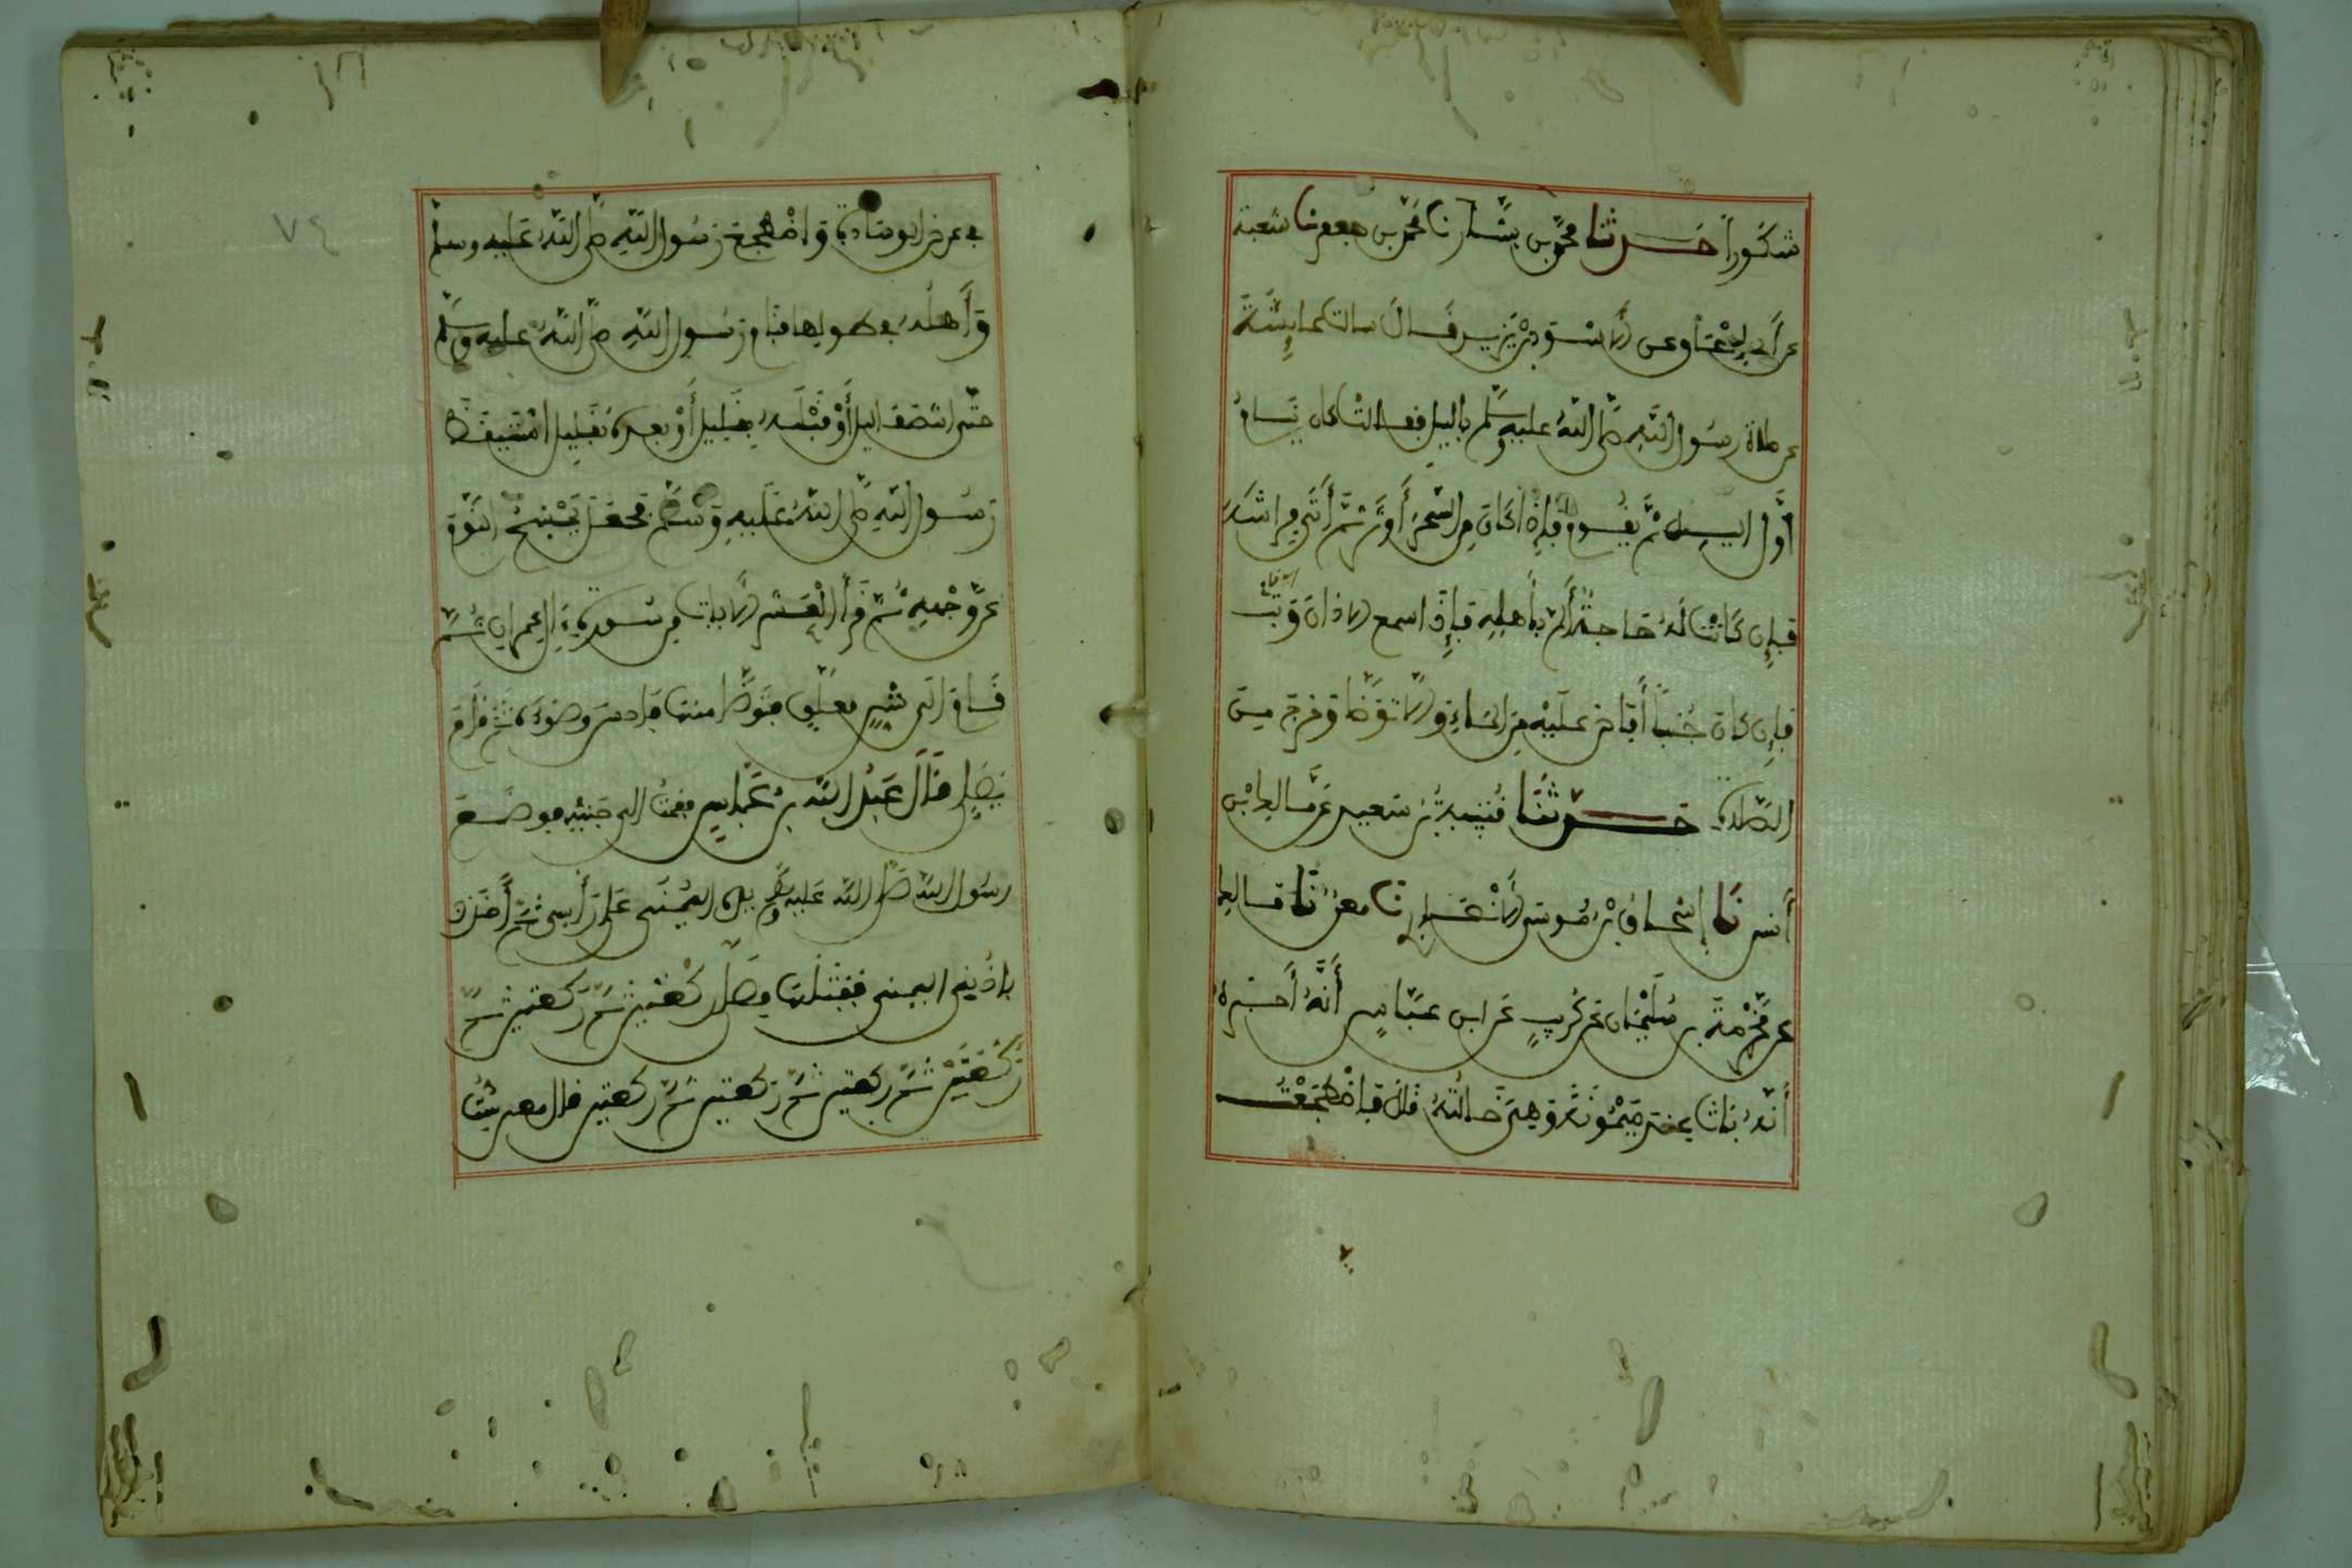 شكورا حدثنا محمد بن بشار نا محمد بن جعفر نا شعبة
عن أبي إسحاق عن الأسود بن يزيد قال سالت عايشة
عن صلاة رسول الله صلى الله عليه وسلم بالليل فقالت كان ينام
أول اليل ثم يقوم فإذا كان من السحر أوتر ثم أتى فراشه
فإن كانت له حاجة ألم بأهله فإذا سمع الأذان وثب
فإن كان جنبا أفاض عليه من الماء وإلا توضأ وخرج من
الصلاة حدثنا قتيبة بن سعيد عن مالك بن
أنس نا إسحاق بن موسى الأنصاري نا معن نا مالك
عن مخرمة بن سليمان عن كريب عن ابن عباس أنه أخبره
أنه بات عند ميمونة وهي خالته قال فاضطجعت
في عرض الوسادة واضطجع رسول الله صلى الله عليه وسلم
وأهله في طولها فنام رسول الله صلى الله عليه وسلم
حتى انتصف اليل أو قبله بقليل أو بعده بقليل استيقظ
رسول الله صلى الله عليه وسلم فجعل يمسح النوم
عن وجهه ثم قرأ العشر الآيات من سورة ال عمران ثم
قام إلى شن معلق فتوضأ منها فأحسن وضوءه ثم قام
يصلي قال عبد الله بن عباس فقمت إلى جنبه فوضع
رسول الله صلى الله عليه وسلم يده اليمنى على رأسي ثم أخذ
بأذني اليمنى ففتلها فصلى ركعتين ثم ركعتين ثم
ركعتين ثم ركعتين ثم ركعتين ثم ركعتين قال معن ست
٧٤